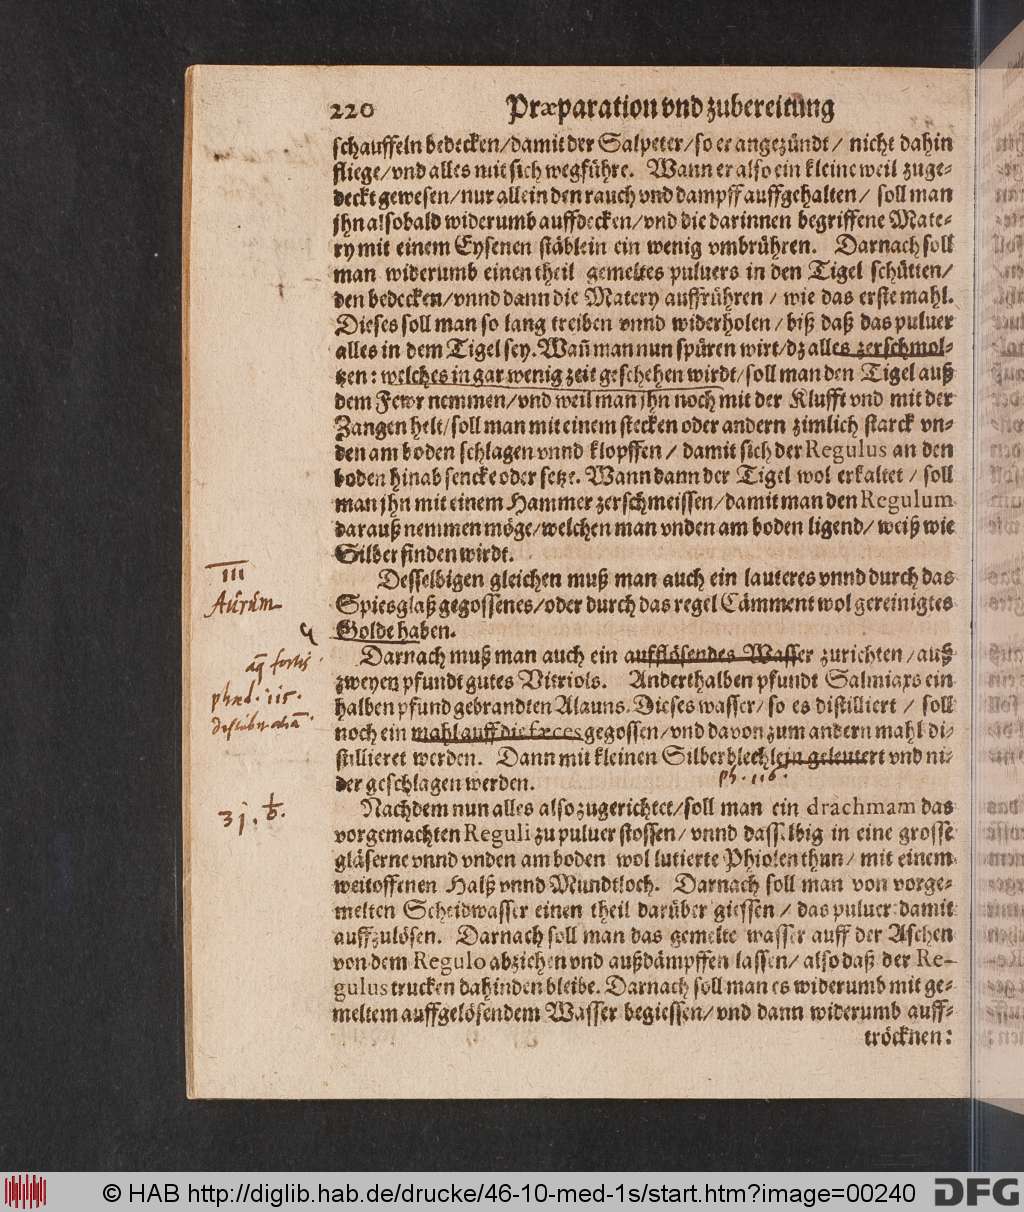 220 Præparation vnd zubereitung
schauffeln bedecken/damit der Salpeter/so er angezündt / nicht dahin
fliege/vnd alles mit sich wegführe. Wann er also ein kleine weil zuge-
deckt gewesen/nur allein den rauch vnd dampff auffgehalten / soll man
jhn alsobald widerumb auffdecken/vnd die darinnen begriffene Mate-
ry mit einem Eysenen stäblein ein wenig vmbrühren. Darnach soll
man widerumb einen theil gemeltes puluers in den Tigel schütten/
den bedecken/vnnd dann die Matery auffrühren / wie das erste mahl.
Dieses soll man so lang treiben vnnd widerholen / biß daß das puluer
alles in dem Tigel sey. Wañ man nun spüren wirt/dz alles zerschmol-
tzen: welches in gar wenig zeit geschehen wirdt/soll man den Tigel auß
dem Fewr nemmen/vnd weil man jhn noch mit der Klufft vnd mit der
Zangen helt/soll man mit einem stecken oder andern zimlich starck vn-
den am boden schlagen vnnd klopffen / damit sich der Regulus an den
boden hinab sencke oder setze. Wann dann der Tigel wol erkaltet / soll
man jhn mit einem Hammer zerschmeissen/damit man den Regulum
darauß nemmen möge/welchen man vnden am boden ligend/ weiß wie
Silber finden wirdt.
III
Desselbigen gleichen muß man auch ein lauteres vnnd durch das
Aurum
Spiesglaß gegossenes/oder durch das regel Cämment wol gereinigtes
Golde haben.
aq fortis
Darnach muß man auch ein aufflösendes Wasser zurichten/auß
zweyen pfundt gutes Vitriols. Anderthalben pfundt Salmiaxs ein
halben pfund gebrandten Alauns. Dieses wasser/ so es distilliert / soll
noch ein mahl auff die fæces gegossen/vnd davon zum andern mahl di-
stillieret werden. Dann mit kleinen Silberblechlein geleutert vnd ni-
der geschlagen werden.
Nachdem nun alles also zugerichtet/soll man ein drachmam das
vorgemachten Reguli zu puluer stossen/ vnnd dasselbig in eine grosse
gläserne vnnd vnden am boden wol lutierte Phiolen thun/ mit einem
weitoffenen Halß vnnd Mundtloch. Darnach soll man von vorge-
melten Scheidwasser einen theil darüber giessen / das puluer damit
auffzulösen. Darnach soll man das gemelte wasser auff der Aschen
von dem Regulo abziehen vnd außdämpffen lassen/ also daß der Re-
gulus trucken dahinden bleibe. Darnach soll man es widerumb mit ge-
meltem auffgelösendem Wasser begiessen/ vnd dann widerumb auff-
tröcknen:
© HAB http://diglib.hab.de/drucke/46-10-med-1s/start.htm?image=00240 DFG